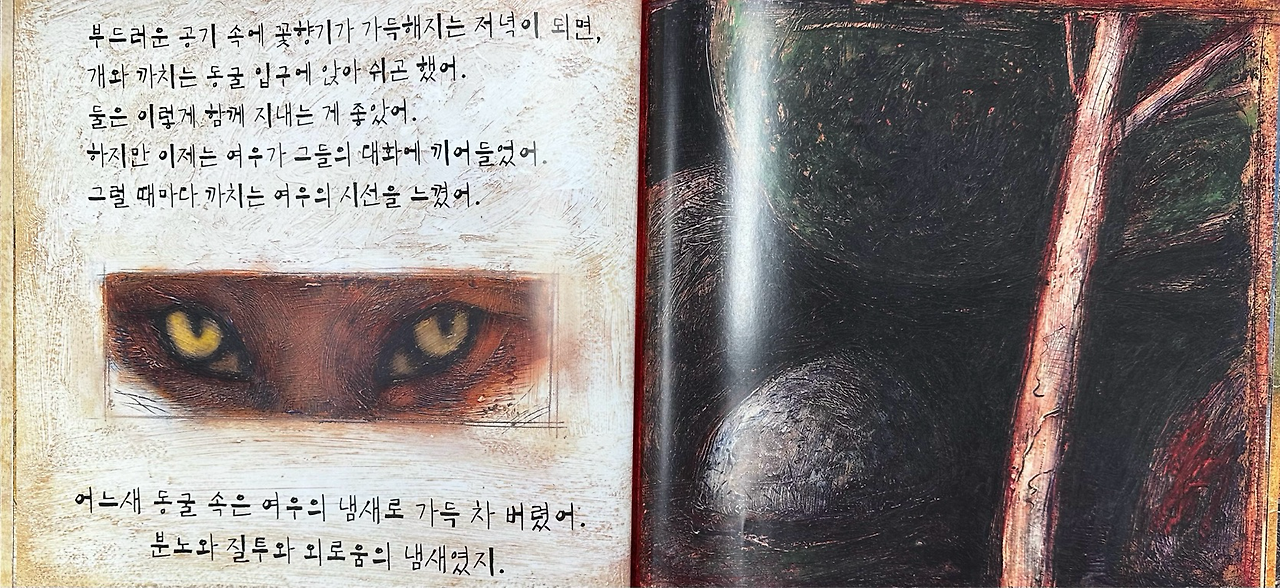 부드러운 공기 속에 꽃향기가 가득해지는 저녁이 되면,
개와 까치는 동굴 입구에 앉아 쉬곤 했어.
둘은 이렇게 함께 지내는 게 좋았어.
하지만 이제는 여우가 그들의 대화에 끼어들었어.
그럴 때마다 까치는 여우의 시선을 느꼈어.
어느새 동굴 속은 여우의 냄새로 가득 차 버렸어.
분노와 질투와 외로움의 냄새였지.